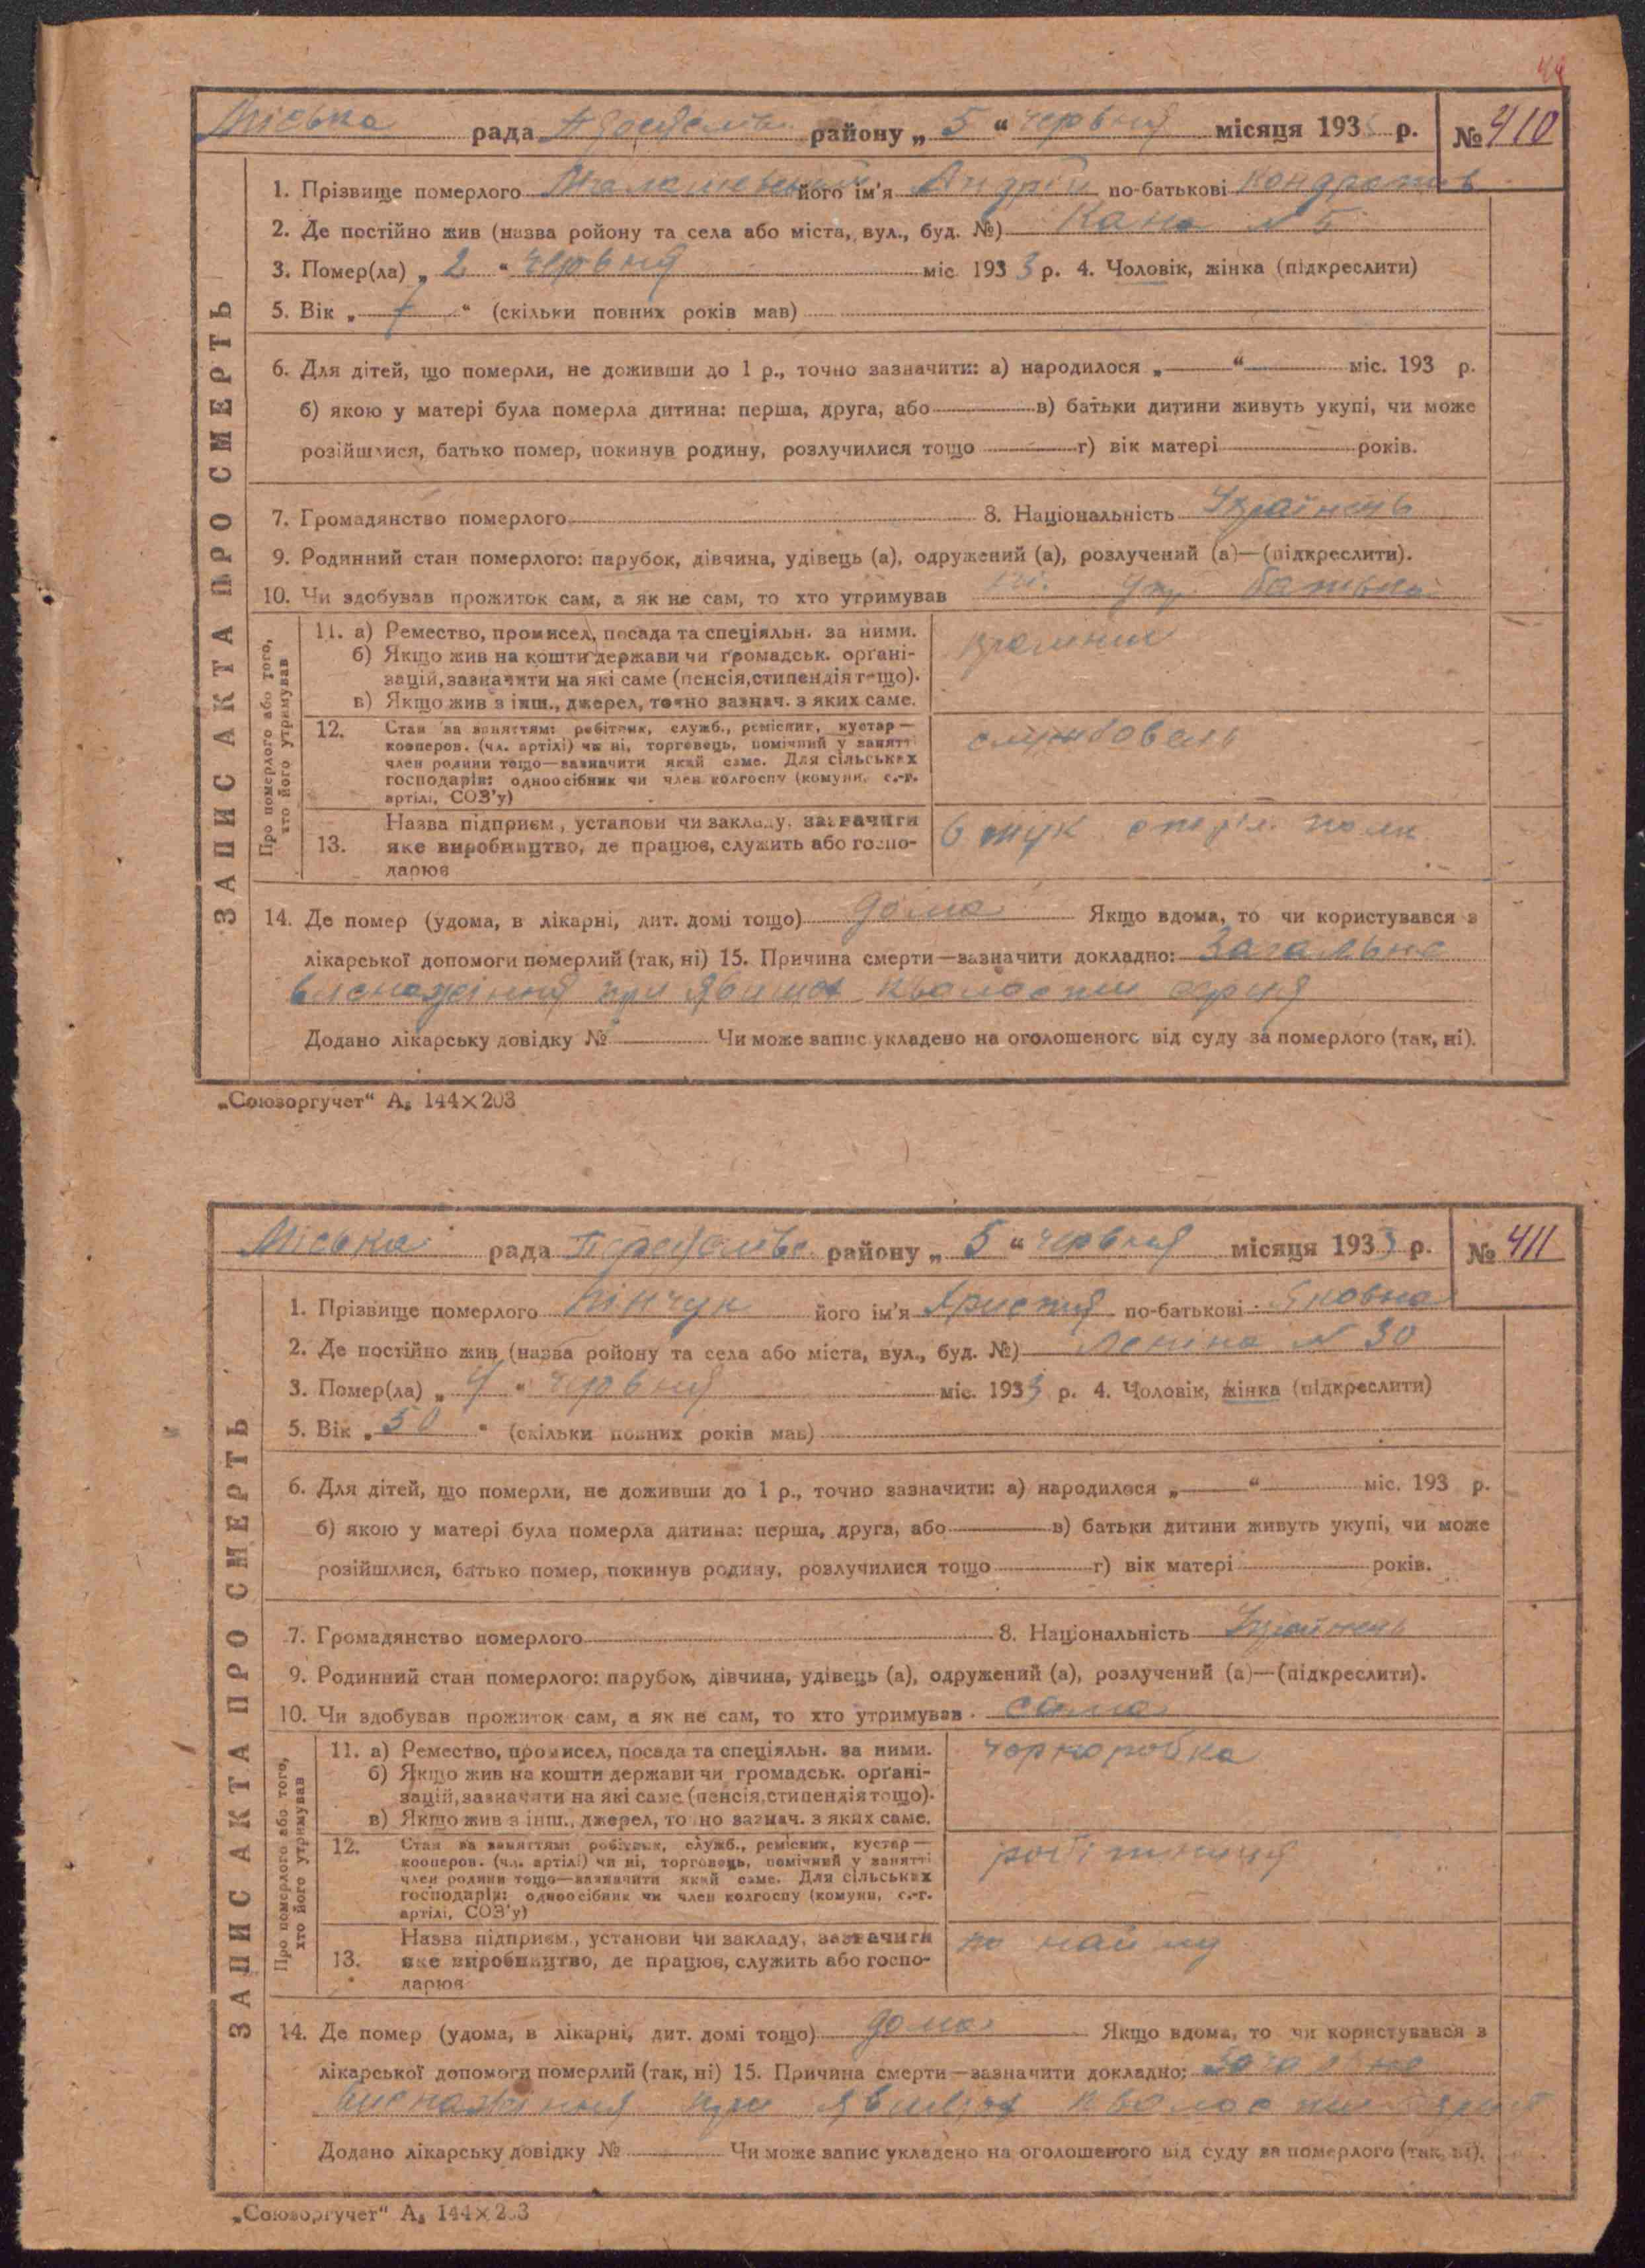 44
Міська рада района району „ 5 “ червня місяця 193 р. № 410
ЗАПИС АКТА ПРО СМЕРТЬ
1. Прізвище померлого його ім'я Андрій по-батькові Кондратов
2. Де постійно жив (назва ройону та села або міста, вул., буд. №) № 5
3. Помер(ла) „ 2 “ червня міс. 193 3 р. 4. Чоловік, жінка (підкреслити)
5. Вік „ 7 “ (скільки повних років мав)
6. Для дітей, що померли, не доживши до 1 р., точно зазначити: а) народилося „ “ міс. 193 р.
б) якою у матері була померла дитина: перша, друга, або в) батьки дитини живуть укупі, чи може
розійшлися, батько помер, покинув родину, розлучилися тощо г) вік матері років.
7. Громадянство померлого 8. Національність Українець
9. Родинний стан померлого: парубок, дівчина, удівець (а), одружений (а), розлучений (а)—(підкреслити).
10. Чи здобував прожиток сам, а як не сам, то хто утримував ні. утр. батько
Про померлого або того, хто його утримував
11. а) Ремество, промисел, посада та спеціяльн. за ними.
б) Якщо жив на кошти держави чи громадськ. орґані-
зацій, зазначити на які саме (пенсія, стипендія тощо).
в) Якщо жив з інш., джерел, точно зазнач. з яких саме.
12. Стан за заняттям: робітник, служб., ремісник, кустар—
кооперов. (чл. артілі) чи ні, торговець, помічний у занятті
член родини тощо—зазначити який саме. Для сільських
господарів: одноосібник чи член колгоспу (комуни, с.-г.
артілі, СОЗ'у)
службовець
13. Назва підприєм., установи чи закладу, зазначити
яке виробництво, де працює, служить або госпо-
дарює
14. Де помер (удома, в лікарні, дит. домі тощо) дома Якщо вдома, то чи користувався з
лікарської допомоги померлий (так, ні) 15. Причина смерти—зазначити докладно: Загальне
виснаження при явищах кволости серця
Додано лікарську довідку № Чи може запис укладено на оголошеного від суду за померлого (так, ні).
„Союзоргучет“ А₅ 144×203
Міська рада району „ 5 “ червня місяця 193 3 р. № 411
ЗАПИС АКТА ПРО СМЕРТЬ
1. Прізвище померлого Пінчук його ім'я Христия по-батькові Яковна
2. Де постійно жив (назва ройону та села або міста, вул., буд. №) Леніна № 30
3. Помер(ла) „ 4 “ червня міс. 193 3 р. 4. Чоловік, жінка (підкреслити)
5. Вік „ 50 “ (скільки повних років мав)
6. Для дітей, що померли, не доживши до 1 р., точно зазначити: а) народилося „ “ міс. 193 р.
б) якою у матері була померла дитина: перша, друга, або в) батьки дитини живуть укупі, чи може
розійшлися, батько помер, покинув родину, розлучилися тощо г) вік матері років.
7. Громадянство померлого 8. Національність Українець
9. Родинний стан померлого: парубок, дівчина, удівець (а), одружений (а), розлучений (а)—(підкреслити).
10. Чи здобував прожиток сам, а як не сам, то хто утримував сама
Про померлого або того, хто його утримував
11. а) Ремество, промисел, посада та спеціяльн. за ними.
б) Якщо жив на кошти держави чи громадськ. орґані-
зацій, зазначити на які саме (пенсія, стипендія тощо).
в) Якщо жив з інш., джерел, точно зазнач. з яких саме.
чорноробка
12. Стан за заняттям: робітник, служб., ремісник, кустар—
кооперов. (чл. артілі) чи ні, торговець, помічний у занятті
член родини тощо—зазначити який саме. Для сільських
господарів: одноосібник чи член колгоспу (комуни, с.-г.
артілі, СОЗ'у)
робітниця
13. Назва підприєм., установи чи закладу, зазначити
яке виробництво, де працює, служить або госпо-
дарює
по найму
14. Де помер (удома, в лікарні, дит. домі тощо) дома Якщо вдома, то чи користувався з
лікарської допомоги померлий (так, ні) 15. Причина смерти—зазначити докладно: Загальне
виснаження при явищах кволости серця
Додано лікарську довідку № Чи може запис укладено на оголошеного від суду за померлого (так, ні).
„Союзоргучет“ А₅ 144×203